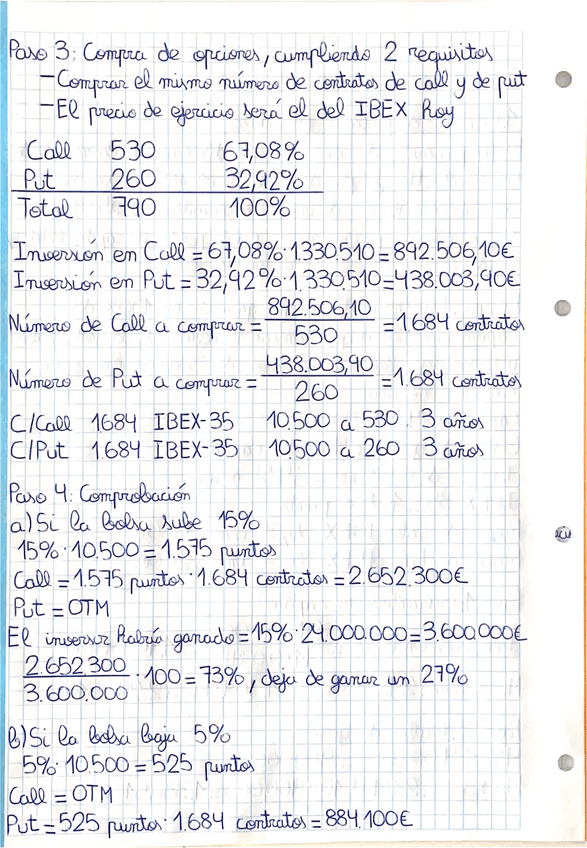 Paso 3: Compra de opciones, cumpliendo 2 requisitos
-Comprar el mismo número de contratos de call y de put
-El precio de ejercicio será el del IBEX hoy
Call 530 67,08%
Put 260 32,92%
Total 790 100%
Inversión en Call = 67,08% · 1.330.510 = 892.506,10€
Inversión en Put = 32,92% · 1.330.510 = 438.003,90€
Número de Call a comprar = 892.506,10 / 530 = 1.684 contratos
Número de Put a comprar = 438.003,90 / 260 = 1.684 contratos
C/Call 1684 IBEX-35 10.500 a 530. 3 años
C/Put 1.684 IBEX-35 10.500 a 260 3 años
Paso 4: Comprobación
a) Si la bolsa sube 15%
15% · 10.500 = 1.575 puntos
Call = 1.575 puntos · 1.684 contratos = 2.652.300€
Put = OTM
El inversor habría ganado = 15% · 24.000.000 = 3.600.000€
2.652.300 / 3.600.000 · 100 = 73%, deja de ganar un 27%
b) Si la bolsa baja 5%
5% · 10.500 = 525 puntos
Call = OTM
Put = 525 puntos · 1.684 contratos = 884.100€